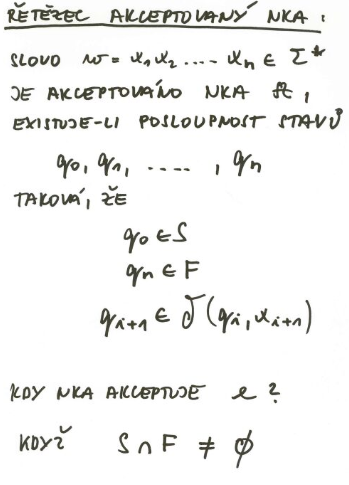 ŘETĚZEC AKCEPTOVANÝ NKA:
SLOVO w = x₁x₂ .... xₙ ∈ Σ*
JE AKCEPTOVÁNO NKA A,
EXISTUJE-LI POSLOUPNOST STAVŮ
q₀, q₁, ...., qₙ
TAKOVÁ, ŽE
q₀ ∈ S
qₙ ∈ F
qᵢ₊₁ ∈ δ(qᵢ, xᵢ₊₁)
KDY NKA AKCEPTUJE e?
KDYŽ S ∩ F ≠ ∅